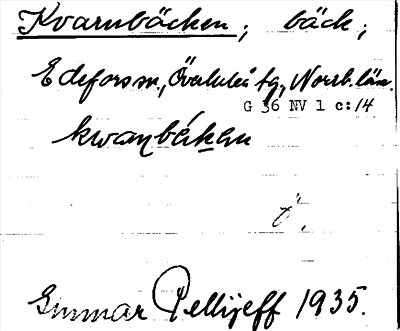 Kvarnbäcken; bäck;
Edefors sn, Överluleå tg, Norrb. län.
G 36 NV 1 c:14
kwaṇbẹ́kạn
Gunnar Pellijeff 1935.